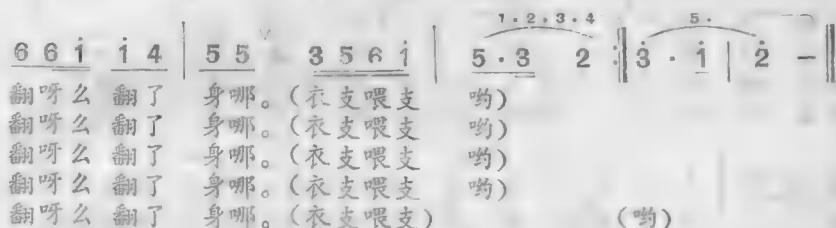 1·2·3·4 5.
6 6 i̇ i̇ 4 | 5 5 ∨ 3 5 6 i̇ | 5 · 3 2 :‖ 3̇ · i̇ | 2̇ - ‖
翻呀么 翻了 身哪。(衣支喂支 哟)
翻呀么 翻了 身哪。(衣支喂支 哟)
翻呀么 翻了 身哪。(衣支喂支 哟)
翻呀么 翻了 身哪。(衣支喂支 哟)
翻呀么 翻了 身哪。(衣支喂支) (哟)